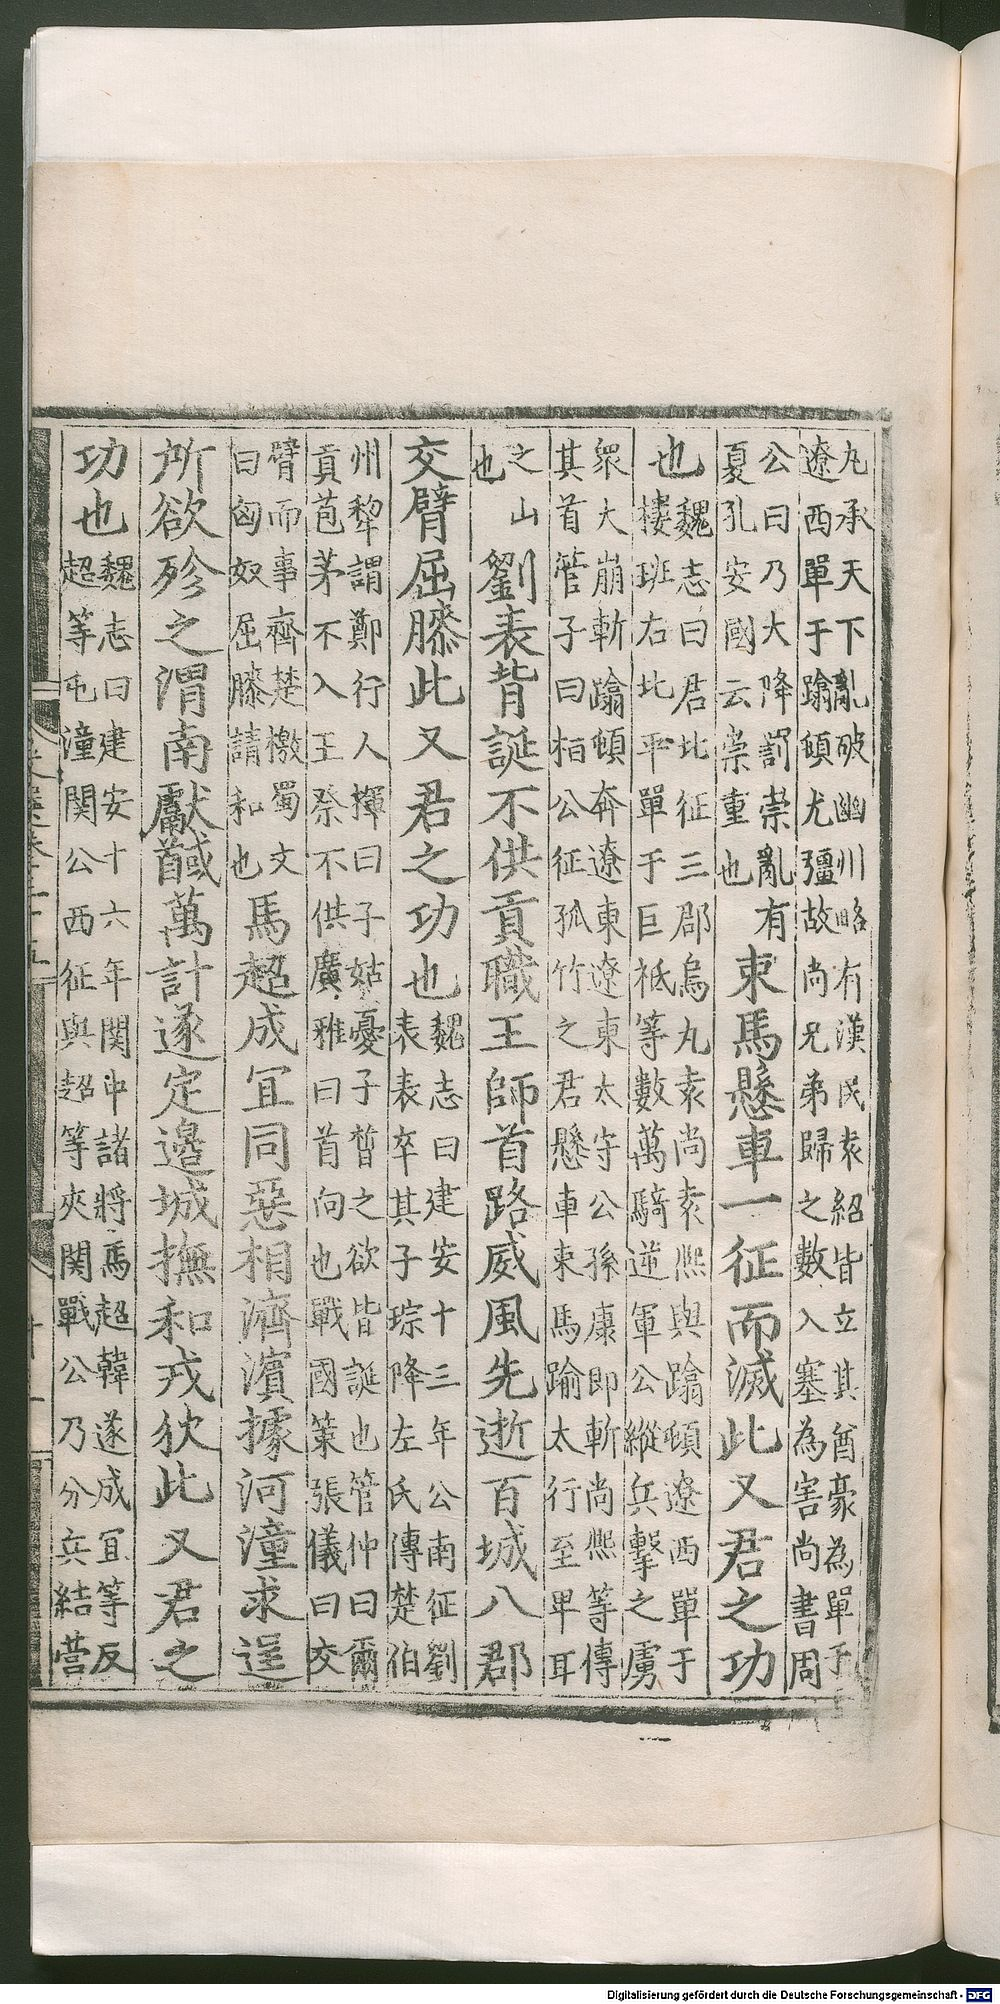 丸承天下亂破幽州略有漢民袁紹皆立其酋豪為單于
遼西單于蹋頓尤彊故尚兄弟歸之數入塞為害尚書周
公曰乃大降罰崇亂有
夏孔安國云崇重也
束馬懸車一征而滅此又君之功
也
魏志曰君北征三郡烏丸袁尚袁熈與蹋頓遼西單于
樓班右北平單于巨秪等數萬騎逆軍公縱兵擊之虜
衆大崩斬蹋頓奔遼東遼東太守公孫康即斬尚熈等傳
其首管子曰栢公征孤竹之君懸車束馬踰太行至卑耳
之山
也
劉表背誕不供貢職王師首路威風先逝百城八郡
交臂屈膝此又君之功也
魏志曰建安十三年公南征劉
表表卒其子琮降左氏傳楚伯
州犂謂鄭行人揮曰子姑憂子晳之欲皆誕也管仲曰爾
貢苞茅不入王祭不供廣雅曰首向也戰國策張儀曰交
臂而事齊楚檄蜀文
曰匈奴屈膝請和也
馬超成宜同惡相濟濵據河潼求逞
所欲殄之渭南獻馘萬計遂定邉城撫和戎狄此又君之
功也
魏志曰建安十六年関中諸將馬超韓遂成宜等反
超等屯潼関公西征與超等夾関戰公乃分兵結營
Digitalisierung gefördert durch die Deutsche Forschungsgemeinschaft - DFG